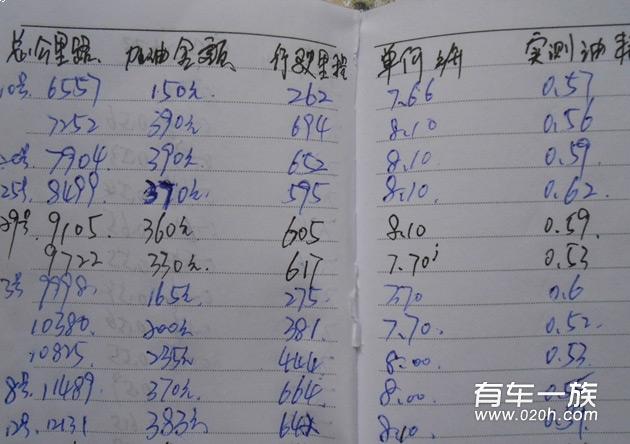 总公里路 加油金额 行驶里程 单价/升 实测油耗
10号 6557 150元 262 7.66 0.57
7252 390元 694 8.10 0.56
20号 7904 390元 652 8.10 0.59
25号 8499 370元 595 8.10 0.62
29号 9105 360元 605 8.10 0.59
9722 330元 617 7.70 0.53
3号 9998 165元 275 7.70 0.6
10380 200元 381 7.70 0.52
10825 235元 444 8.00 0.53
8号 11489 370元 664 8.00
12号 12131 383元 8.10
有车一族
www.020h.com